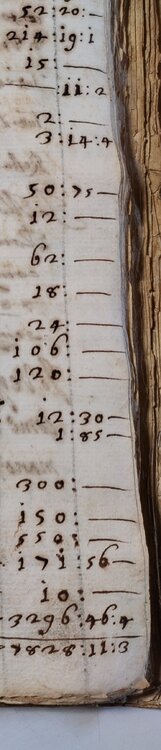 52:20:—
214:19:1
15 —
:11:2
2: —
3:14:4
50:75 —
12: —
62: —
18 —
24: —
106: —
120: —
12:30 —
1:85 —
300: —
150: —
550: —
171:56 —
10: —
3296:46:4
7828:11:3